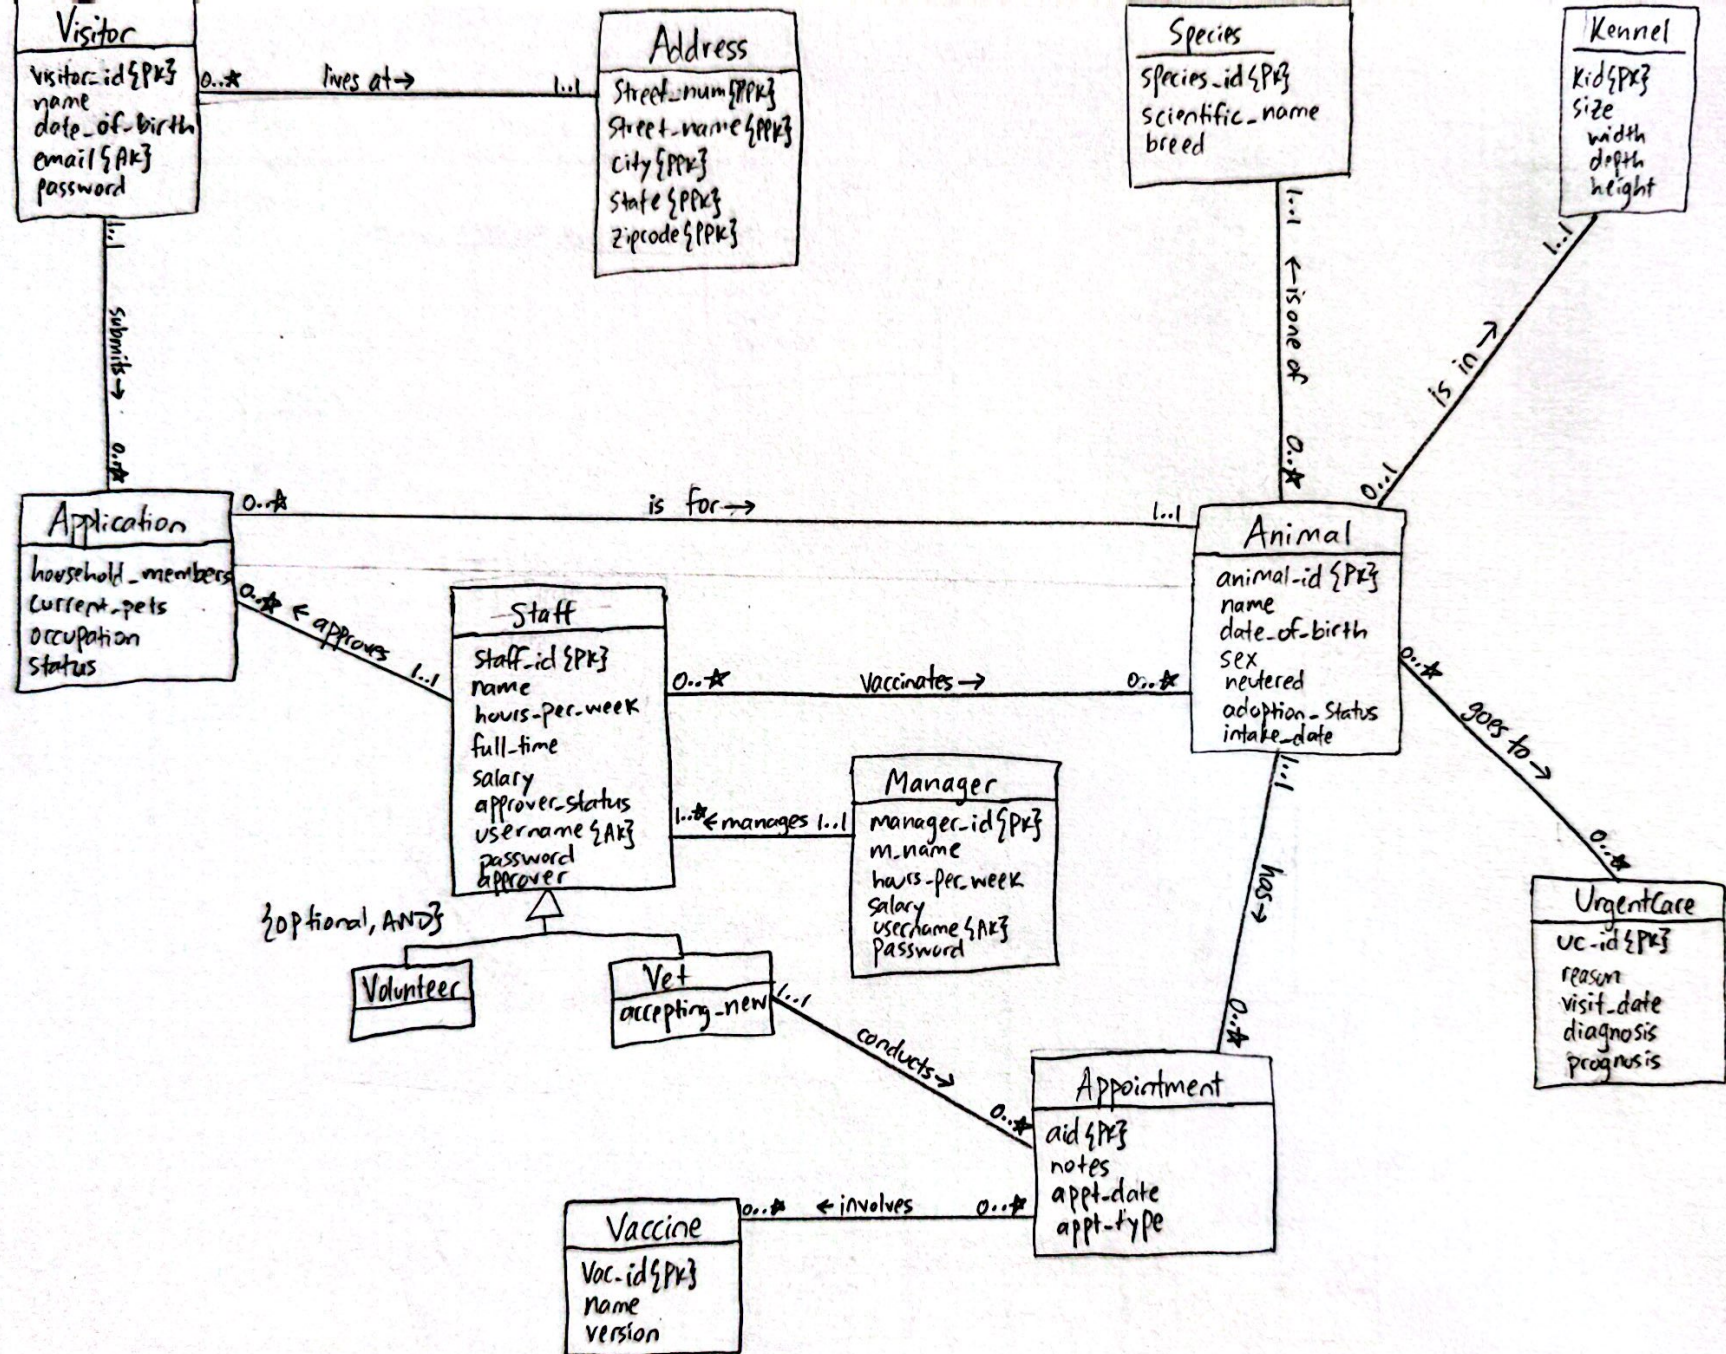 Visitor
visitor_id{PK}
name
date_of_birth
email{AK}
password
0..*
lives at→
1..1
Address
Street_num{PPK}
Street_name{PPK}
City{PPK}
State{PPK}
Zipcode{PPK}
Species
species_id{PK}
scientific_name
breed
Kennel
kid{PK}
size
width
depth
height
1..1
submits→
0..*
1..1
←is one of
0..*
1..1
is in→
0..1
Application
household_members
current_pets
occupation
status
0..*
is for→
1..1
Animal
animal_id{PK}
name
date_of_birth
sex
neutered
adoption_status
intake_date
0..*
←approves
1..1
Staff
staff_id{PK}
name
hours_per_week
full_time
salary
approver_status
username{AK}
password
approver
0..*
vaccinates→
0..*
1..*
←manages
1..1
Manager
manager_id{PK}
m_name
hours_per_week
salary
username{AK}
password
0..*
goes to→
0..*
UrgentCare
uc_id{PK}
reason
visit_date
diagnosis
prognosis
{optional, AND}
Volunteer
Vet
accepting_new
1..1
conducts→
0..*
1..1
has→
0..*
Appointment
aid{PK}
notes
appt_date
appt_type
0..*
←involves
0..*
Vaccine
Vac_id{PK}
name
version